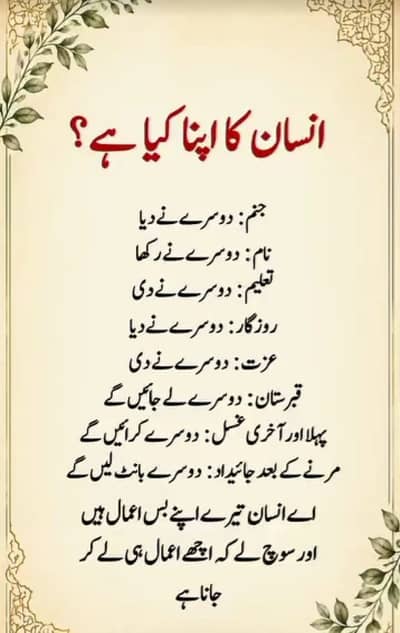 انسان کا اپنا کیا ہے؟
جنم: دوسرے نے دیا
نام: دوسرے نے رکھا
تعلیم: دوسرے نے دی
روزگار: دوسرے نے دیا
عزت: دوسرے نے دی
قبرستان: دوسرے لے جائیں گے
پہلا اور آخری غسل: دوسرے کرائیں گے
مرنے کے بعد جائیداد: دوسرے بانٹ لیں گے
اے انسان تیرے اپنے بس اعمال ہیں
اور سوچ لے کہ اچھے اعمال ہی لے کر
جانا ہے